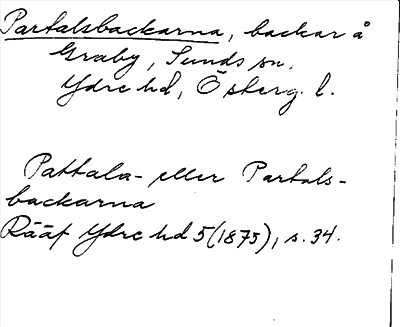 Partalsbackarna, backar å
Graby, Sunds sn,
Ydre hd, Ösberg. l.
Pattala- eller Partals-
backarna
Rääf Ydre hd 5 (1875), s. 34.